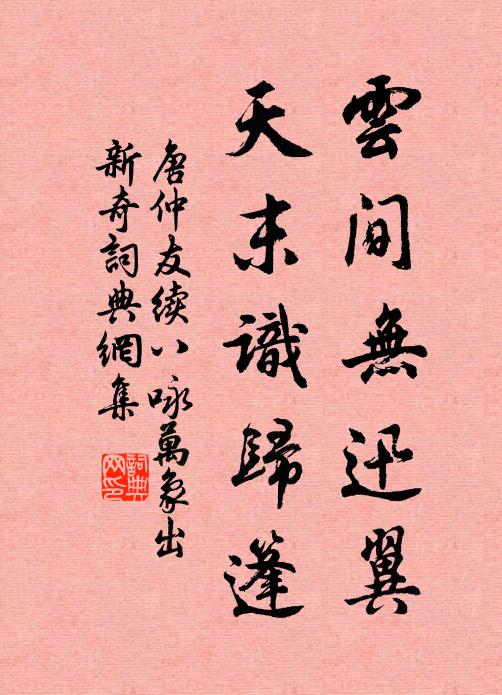 雲間無迅翼
天末識歸篷
唐仲友續八咏萬象出
新奇詞典網集
詞典网印